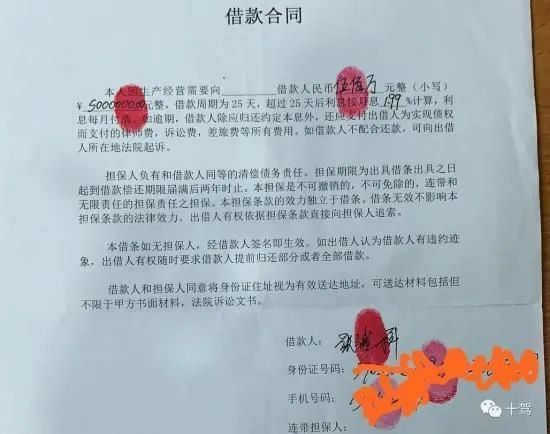 借款合同
本人因生产经营需要向 借款人民币伍佰万元整（小写）
￥5000000.00元整，借款周期为25天，超过25天后利息按月息1.99%计算，利
息每月付清。如逾期，借款人除应归还约定本息外，还应支付出借人为实现债权
而支付的律师费，诉讼费，差旅费等所有费用。如借款人不配合还款，可向出借
人所在地法院起诉。
担保人负有和借款人同等的清偿债务责任。担保期限为出具借条出具之日
起到借款偿还期限届满后两年时止。本担保是不可撤销的，不可免除的，连带和
无限责任的担保责任之担保。本担保条款的效力独立于借条。借条无效不影响本
担保条款的法律效力。出借人有权依据担保条款直接向担保人追索。
本借条如无担保人，经借款人签名即生效。如出借人认为借款人有违约迹
象，出借人有权随时要求借款人提前归还部分或者全部借款。
借款人和担保人同意将身份证住址视为有效送达地址，可送达材料包括但
不限于甲方书面材料，法院诉讼文书。
借款人：
身份证号码：
手机号码：
连带担保人：
十驾